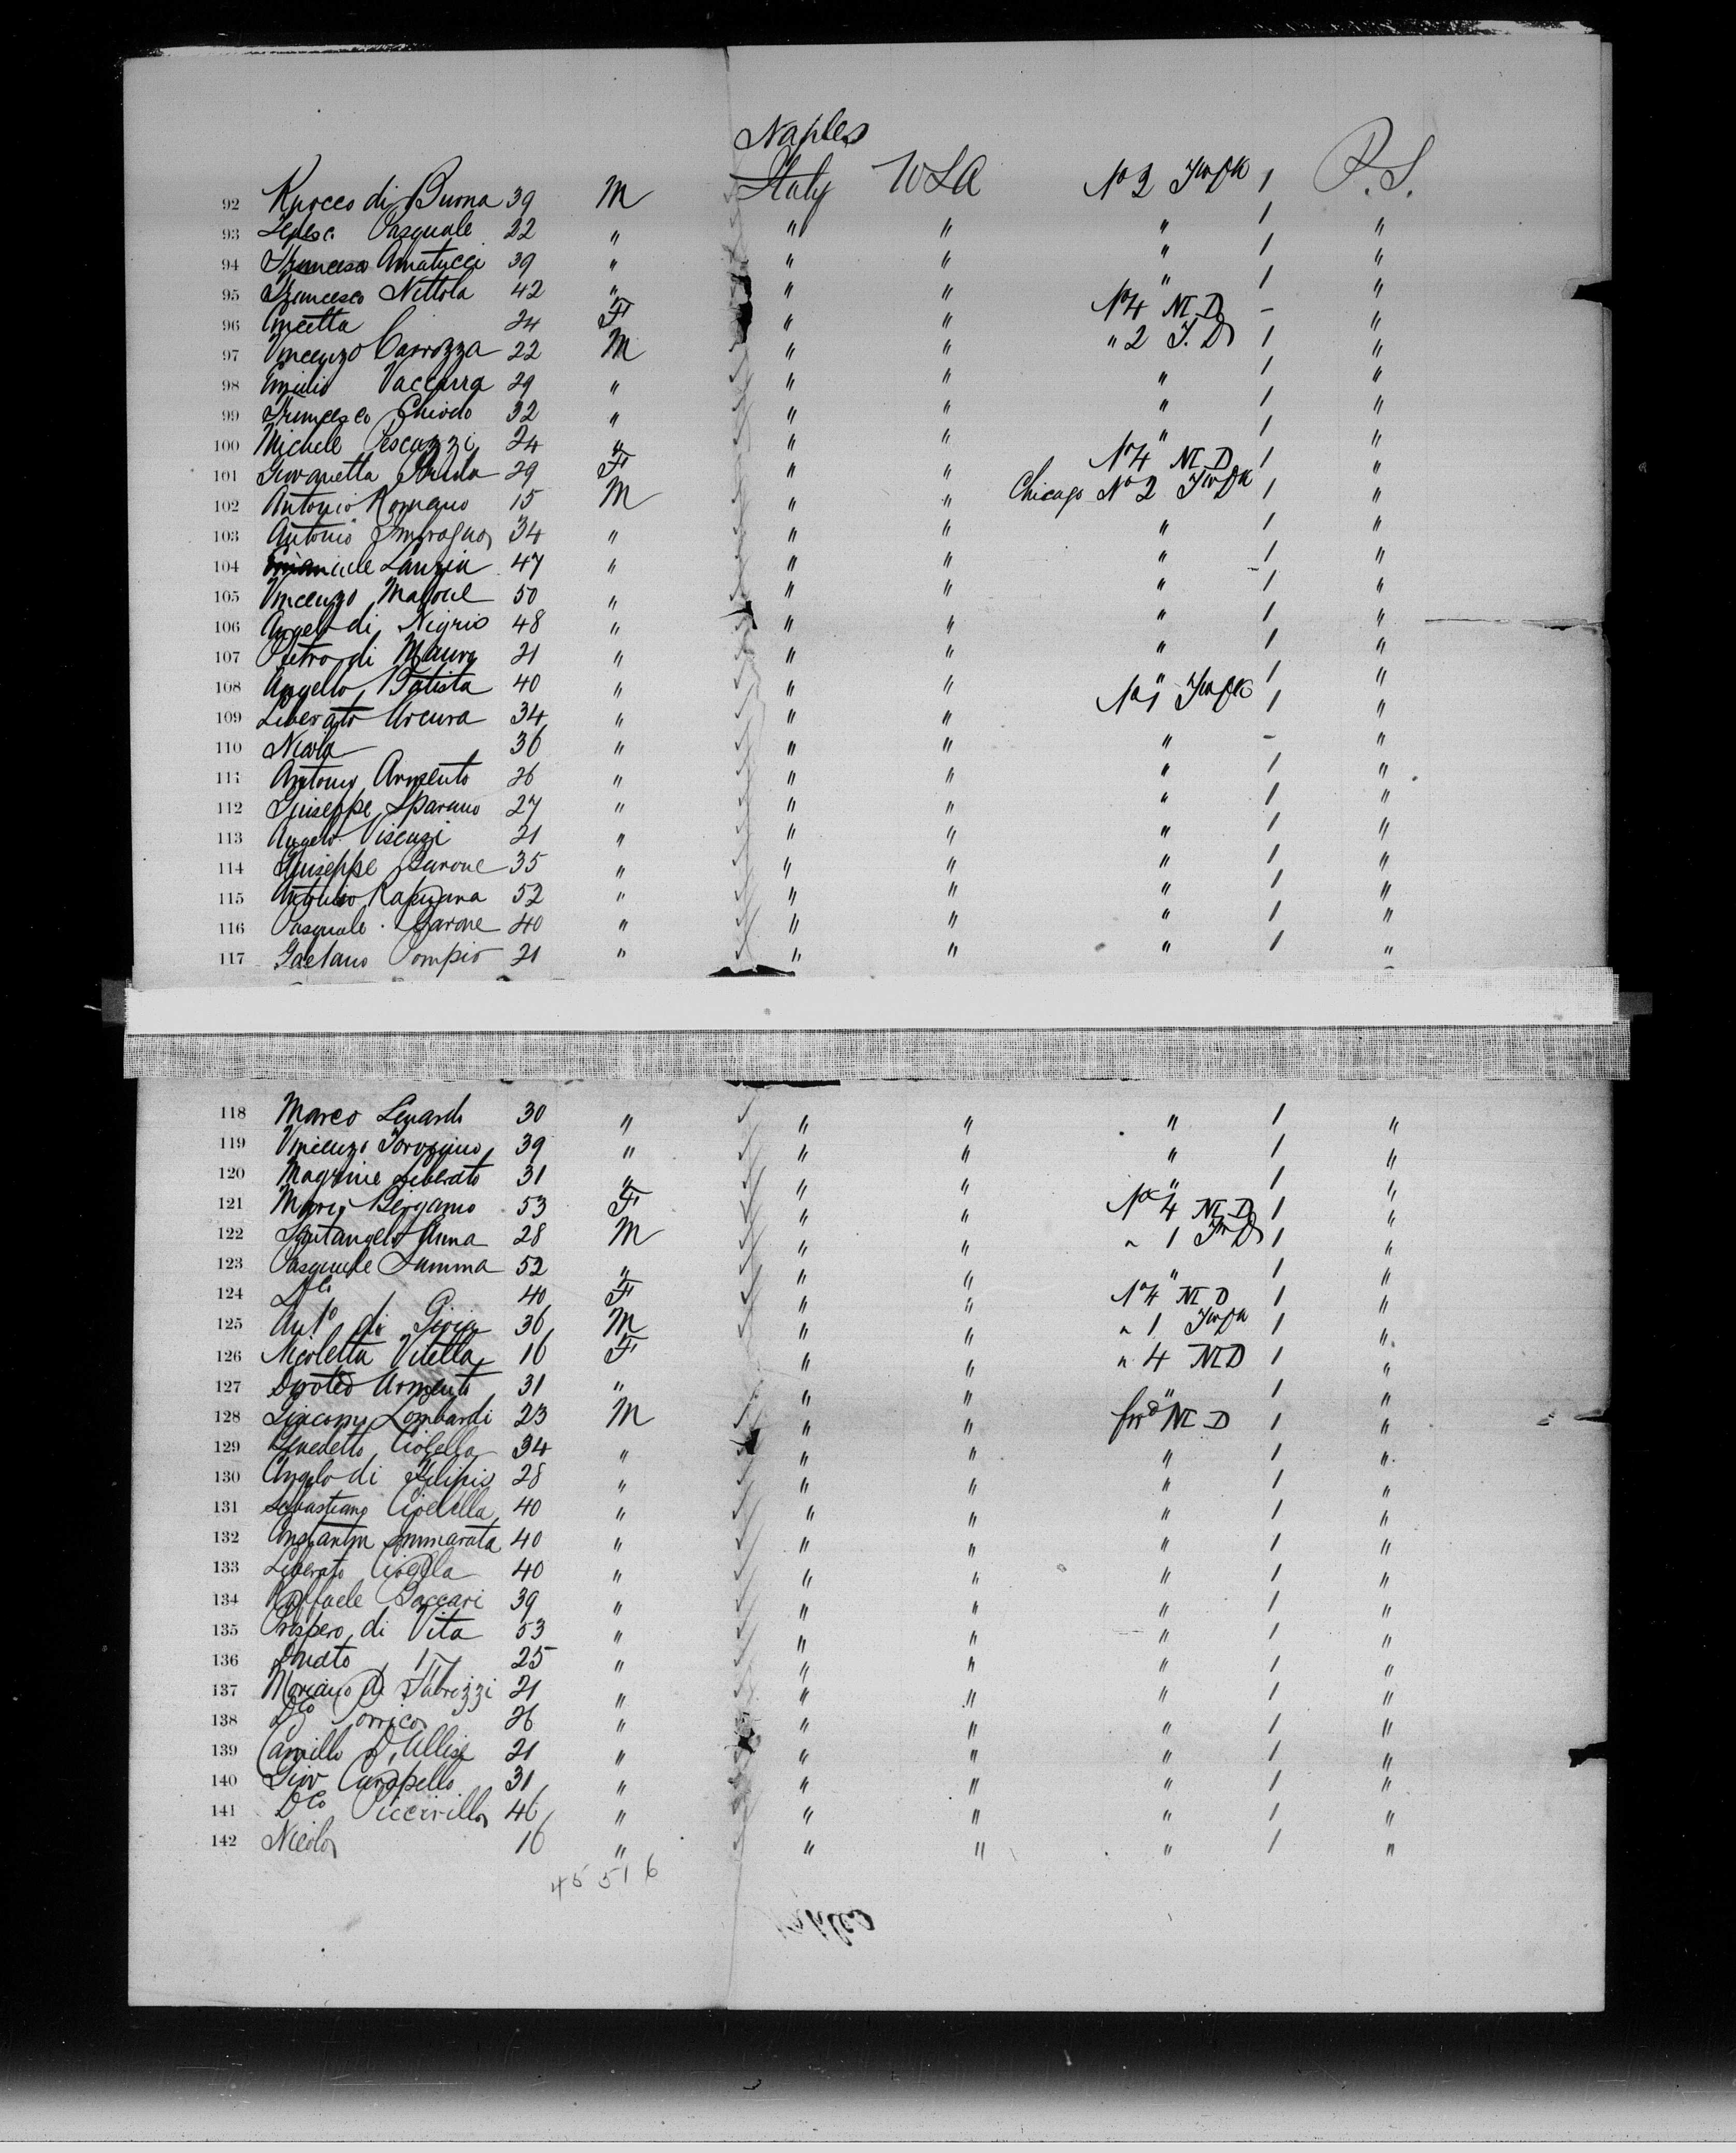 Naples
92 Rocco di Buona 39 M Italy USA No 2 TwDk 1 P.S.
93 Pasquale 22 " " " " 1 "
94 Francesco Amatucci 39 " " " " 1 "
95 Francesco Nittola 42 " " " " 1 "
96 24 F " " No 4 M D - "
97 Vincenzo Carrozza 22 M " " " 2 T. D 1 "
98 Emilio Vaccarra 29 " " " " 1 "
99 Francesco Chiodo 32 " " " " 1 "
100 Michele Pescuzzi 24 " " " " 1 "
101 Giovanetta 29 F " " No 4 M D 1 "
102 Antonio Romano 15 M " " Chicago No 2 TwDk 1 "
103 Antonio Imbrogno 34 " " " " 1 "
104 Lanzia 47 " " " " 1 "
105 Vincenzo 50 " " " " 1 "
106 Angelo di Nigris 48 " " " " 1 "
107 Pietro di Mauro 21 " " " " 1 "
108 Angello Batista 40 " " " " 1 "
109 Liberato Arcura 34 " " " No 1 TwDk 1 "
110 Nicola 36 " " " " - "
111 Antonio Armento 26 " " " " 1 "
112 Giuseppe Sparano 27 " " " " 1 "
113 Angelo Viscuzi 21 " " " " 1 "
114 Giuseppe Barone 35 " " " " 1 "
115 Antonio Rapuana 52 " " " " 1 "
116 Pasquale Barone 40 " " " " 1 "
117 Gaetano Pompio 21 " " " " 1 "
118 Marco Lenardo 30 " " " " 1 "
119 Vincenzo 39 " " " " 1 "
120 Liberato 31 " " " " 1 "
121 Maria Bergamo 53 F " " No 4 M D 1 "
122 Santangelo Anna 28 M " " " 1 TwD 1 "
123 Pasquale Lamma 52 " " " " 1 "
124 40 F " " No 4 M D 1 "
125 Anto di Gioia 36 M " " " 1 TwDk 1 "
126 Nicoletta Vitella 16 F " " " 4 M D 1 "
127 Armento 31 " " " " 1 "
128 Giacomo Lombardi 23 M " " M D 1 "
129 Benedetto Ciolella 34 " " " " 1 "
130 Angelo di Filipis 28 " " " " 1 "
131 Sebastiano Ciolella 40 " " " " 1 "
132 Ammarata 40 " " " " 1 "
133 Liberato Ciolella 40 " " " " 1 "
134 Raffaele Zaccari 39 " " " " 1 "
135 Prospero di Vita 53 " " " " 1 "
136 Donato " 25 " " " " 1 "
137 Mariano di Fabrozzi 21 " " " " 1 "
138 Dco Porrico 26 " " " " 1 "
139 Camillo D'Allisi 21 " " " " 1 "
140 Giov Carapello 31 " " " " 1 "
141 Dco Piccirillo 46 " " " " 1 "
142 Nicola 16 " " " " 1 "
45516